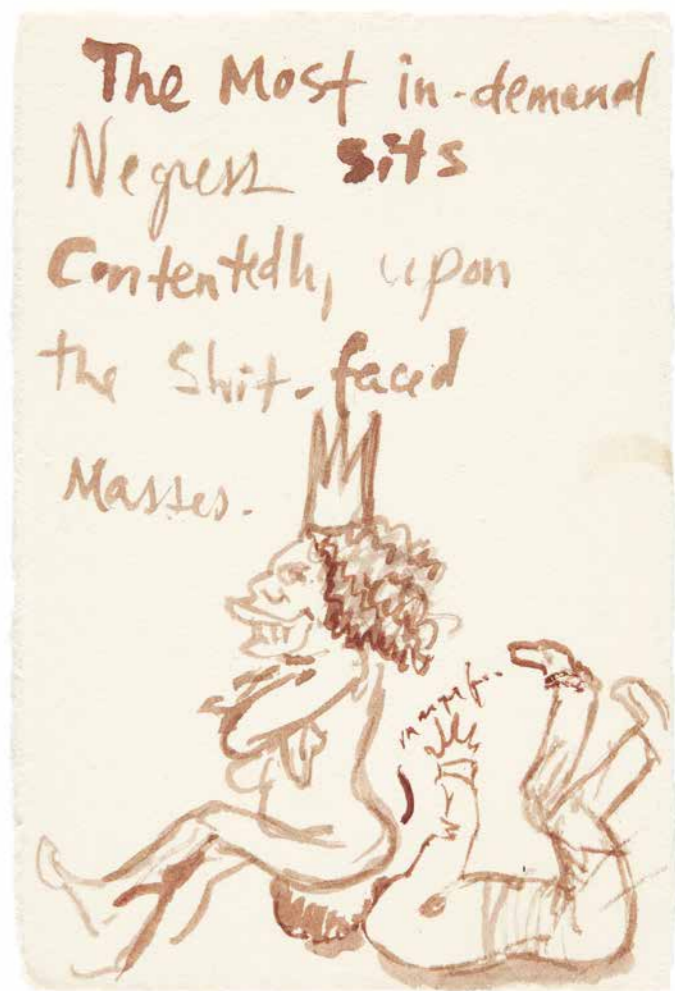 The Most in-demand
Negress sits
Contentedly, upon
the Shit-faced
Masses.